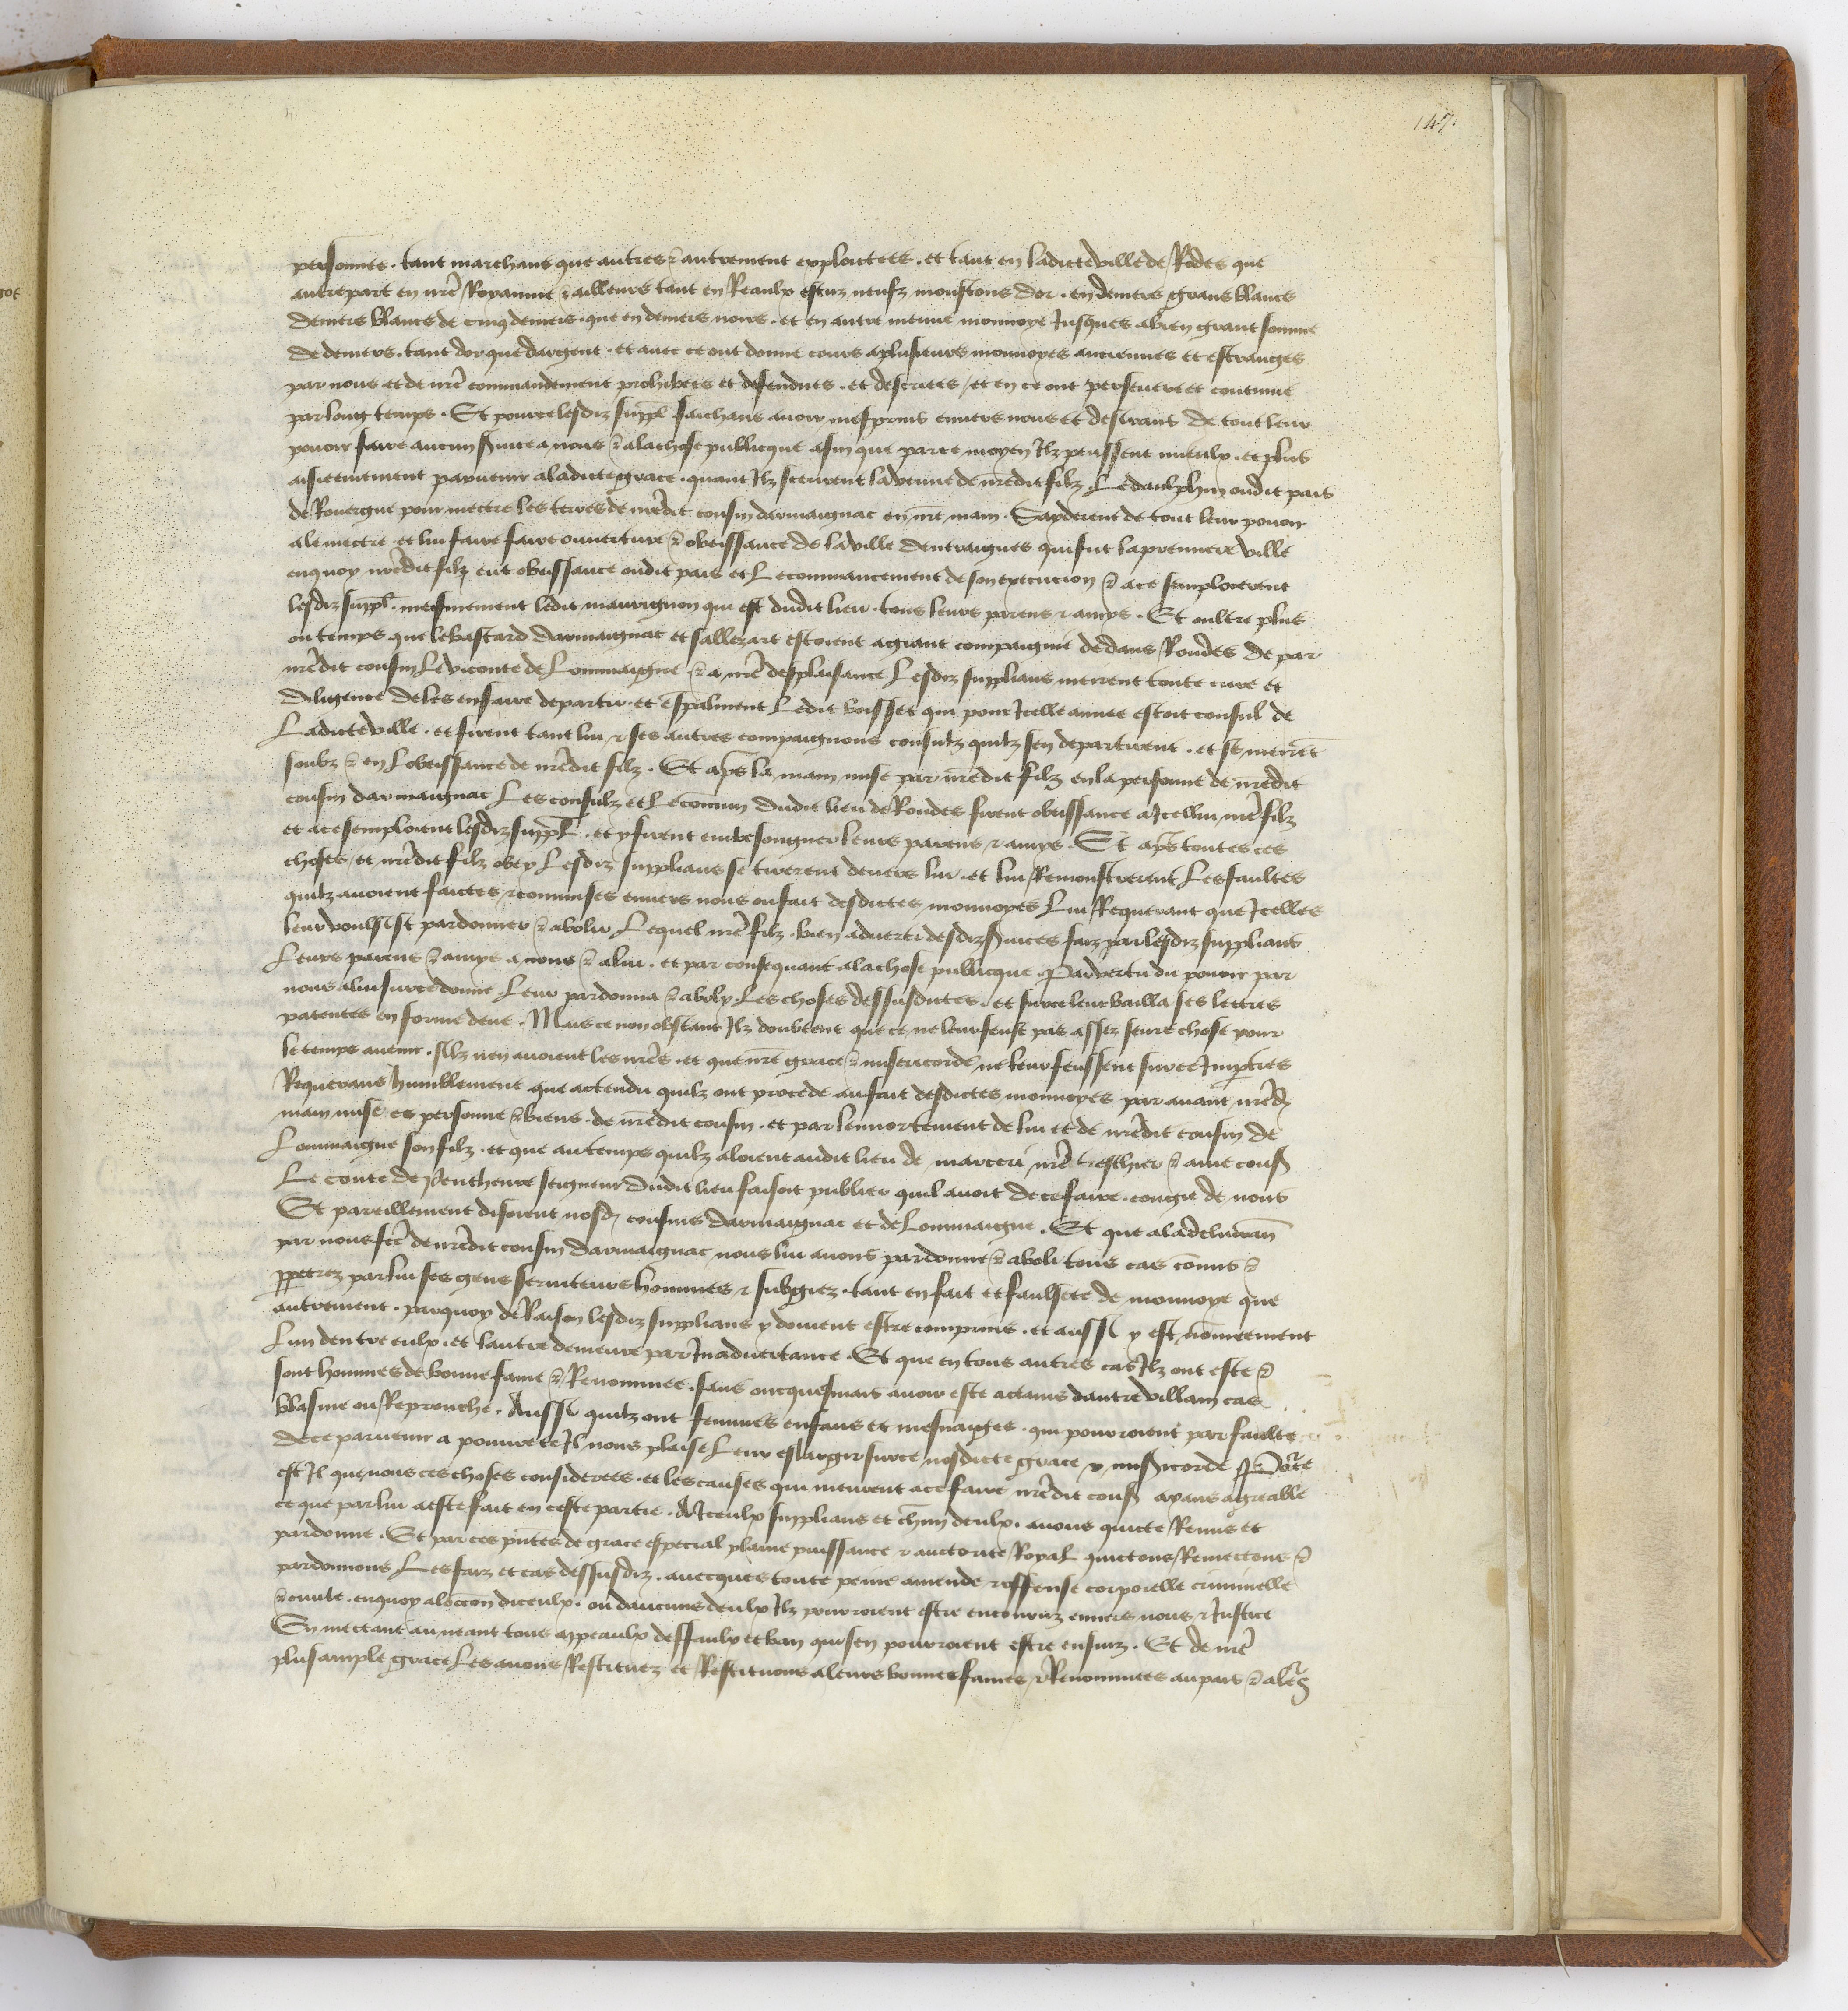 147.
personnes. tant marchans que autres & autrement exploictees. et tant en ladicte ville de Rodes que
autrepart en nre Royaume & ailleurs tant en Reaulx escuz neufz moustons dor. en deniers grans blancs
deniers blancs de cinq deniers. que en deniers noirs. et en autre menue monnoye Jusques a bien grant somme
de deniers. tant dor que dargent. et avec ce ont donne cours a plusieurs monnoyes anciennes et estranges
par nous et de nre commandement prohibees et defendues. et descriees / et en ce ont persevere et continue
par long temps. Et pource lesdiz suppl saichans avoir mespris envers nous et desirans de tout leur
pouoir faire aucun service a nous & a la chose publicque afin que par ce moyen Ilz peussent mieulx. et plus
aisieement parvenir a ladicte grace. quant Ilz sceurent la venue de nredit filz. Le daulphin oudit pais
de Rouergue pour mectre les terres de nredit cousin darmaignac en nre main. Sayderent de tout leur pouoir
a le mectre et lui faire faire ouverture & obeissance de la ville dentraigues qui fut la premiere ville
en quoy nredit filz eut obeissance oudit pais et Le commancement de son execucion & a ce semploierent
lesdiz suppl. mesmement ledit mauvignon qui est dudit lieu. tous leurs parens & amys. Et oultre plus
ou temps que le bastard darmaignac et sallezart estoient a grant compaignie dedans Roudes de par
nredit cousin Le viconte de Lommaigne & a nre desplaisance Lesdiz supplians mirrent toute cure et
diligence de les en faire departir. et espalment Ledit boisset qui pour Icelle annee estoit consul de
Ladicte ville. et firent tant lui & ses autres compaignons consulz quilz sen departirent. et se mirret
soubz & en L obeissance de nredit filz. Et aps la main mise par nredit filz en la personne de nredit
cousin darmaignac Les consulz et Le comun dudit lieu de Roudes firent obeissance a Icellui nre filz
et a ce semploient lesdiz suppl. et y firent embesongner leurs parens & amys. Et aps toutes ces
choses / et nredit filz obey Lesdiz supplians se tirerent devers lui. et lui Remonstrerent Les faultes
quilz avoient faictes & commises envers nous ou fait desdictes monnoyes Lui Requerant que Icelles
leur voulsist pardonner & abolir Lequel nre filz. bien adverti desdiz services faiz par lesdiz supplians
Leurs parens & amys a nous & a lui. et par consequant a la chose publicque. Par vertu du pouoir par
nous a lui sur ce donne. Leur pardonna & aboly. Les choses dessusdictes. et sur ce leur bailla ses lettres
patentes en forme deue. Mais ce non obstant Ilz doubtent que ce ne leur feust pas assez seure chose pour
le temps avenir. silz nen avoient les nres. et que nre grace & misericorde ne leur feussent sur ce Imparties
Requerans humblement que actendu quilz ont procede au fait desdictes monnoyes par avant nred
main mise es personne & biens. de nredit cousin. et par lennortement de lui et de nredit cousin de
Lommaigne son filz. et que au temps quilz aloient audit lieu de marceri nre treschier & ame cous
Le conte de Penthevre seigneur dudit lieu faisoit publier quil avoit de ce faire. congie de nous
Et pareillement disoient nosd cousins darmaignac et de Lommaigne. Et que a la delivran
par nous fce de nredit cousin darmaignac nous lui avons pardonne & aboli tous cas comis &
ppetrez par lui ses gens serviteurs hommes & subgiez. tant en fait et faulsete de monnoye que
autrement. parquoy de Raison lesdiz supplians y doivent estre comprins. et aussi y est nomeement
Lun dentre eulx. et lautre demeure par Inadvertance. Et que en tous autres cas Ilz ont este &
sont hommes de bonne fame & Renommee. sans oncquesmais avoir este actains dautre villain cas
blasme ou Reprouche. Aussi quilz ont femmes enfans et mesnaiges. qui pourroient par faulte
de ce parvenir a pouvrete Il nous plaise Leur eslargir sur ce nosdicte grace & misericorde Pource
est Il que nous ces choses considerees. et les causes qui meurent a ce faire nredit cous ayans agreable
ce que par lui a este fait en ceste partie. A Iceulx supplians et chun deulx. avons quicte Remis et
pardonne. Et par ces pntes de grace especial plaine puissance & auctorite Royal quictons Remectons &
pardonnons Les faiz et cas dessusdiz. avecques toute peine amende & offense corporelle criminelle
& civile. en quoy a loccon diceulx. ou daucuns deulx Ilz pourroient estre encouruz envers nous & Justice
En mectant au neant tous appeaulx deffaulx et ban qui sen pourroient estre ensuiz. Et de nre
plus ample grace Les avons Restituez et Restituons a leurs bonnes fames & Renommees au pais & a leurs